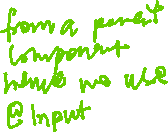 from a parent
component
hence no use
@Input